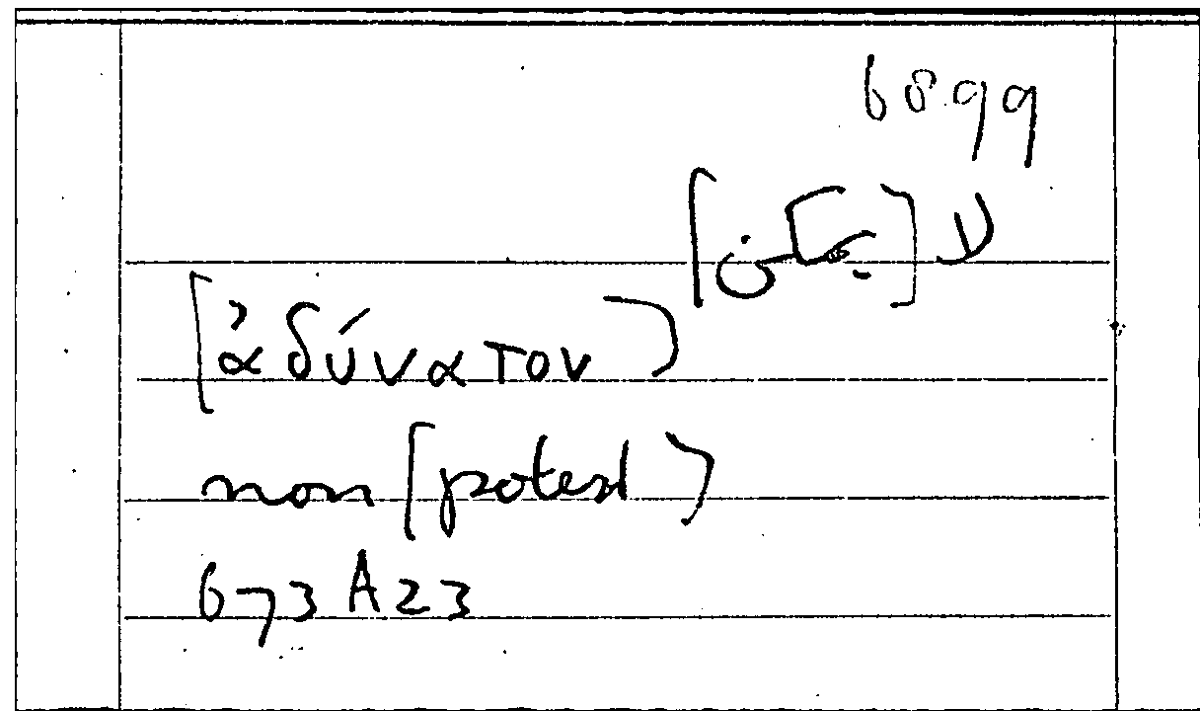 6899
لا [يمكن]
[ἀδύνατον]
non [potest]
673 A 23